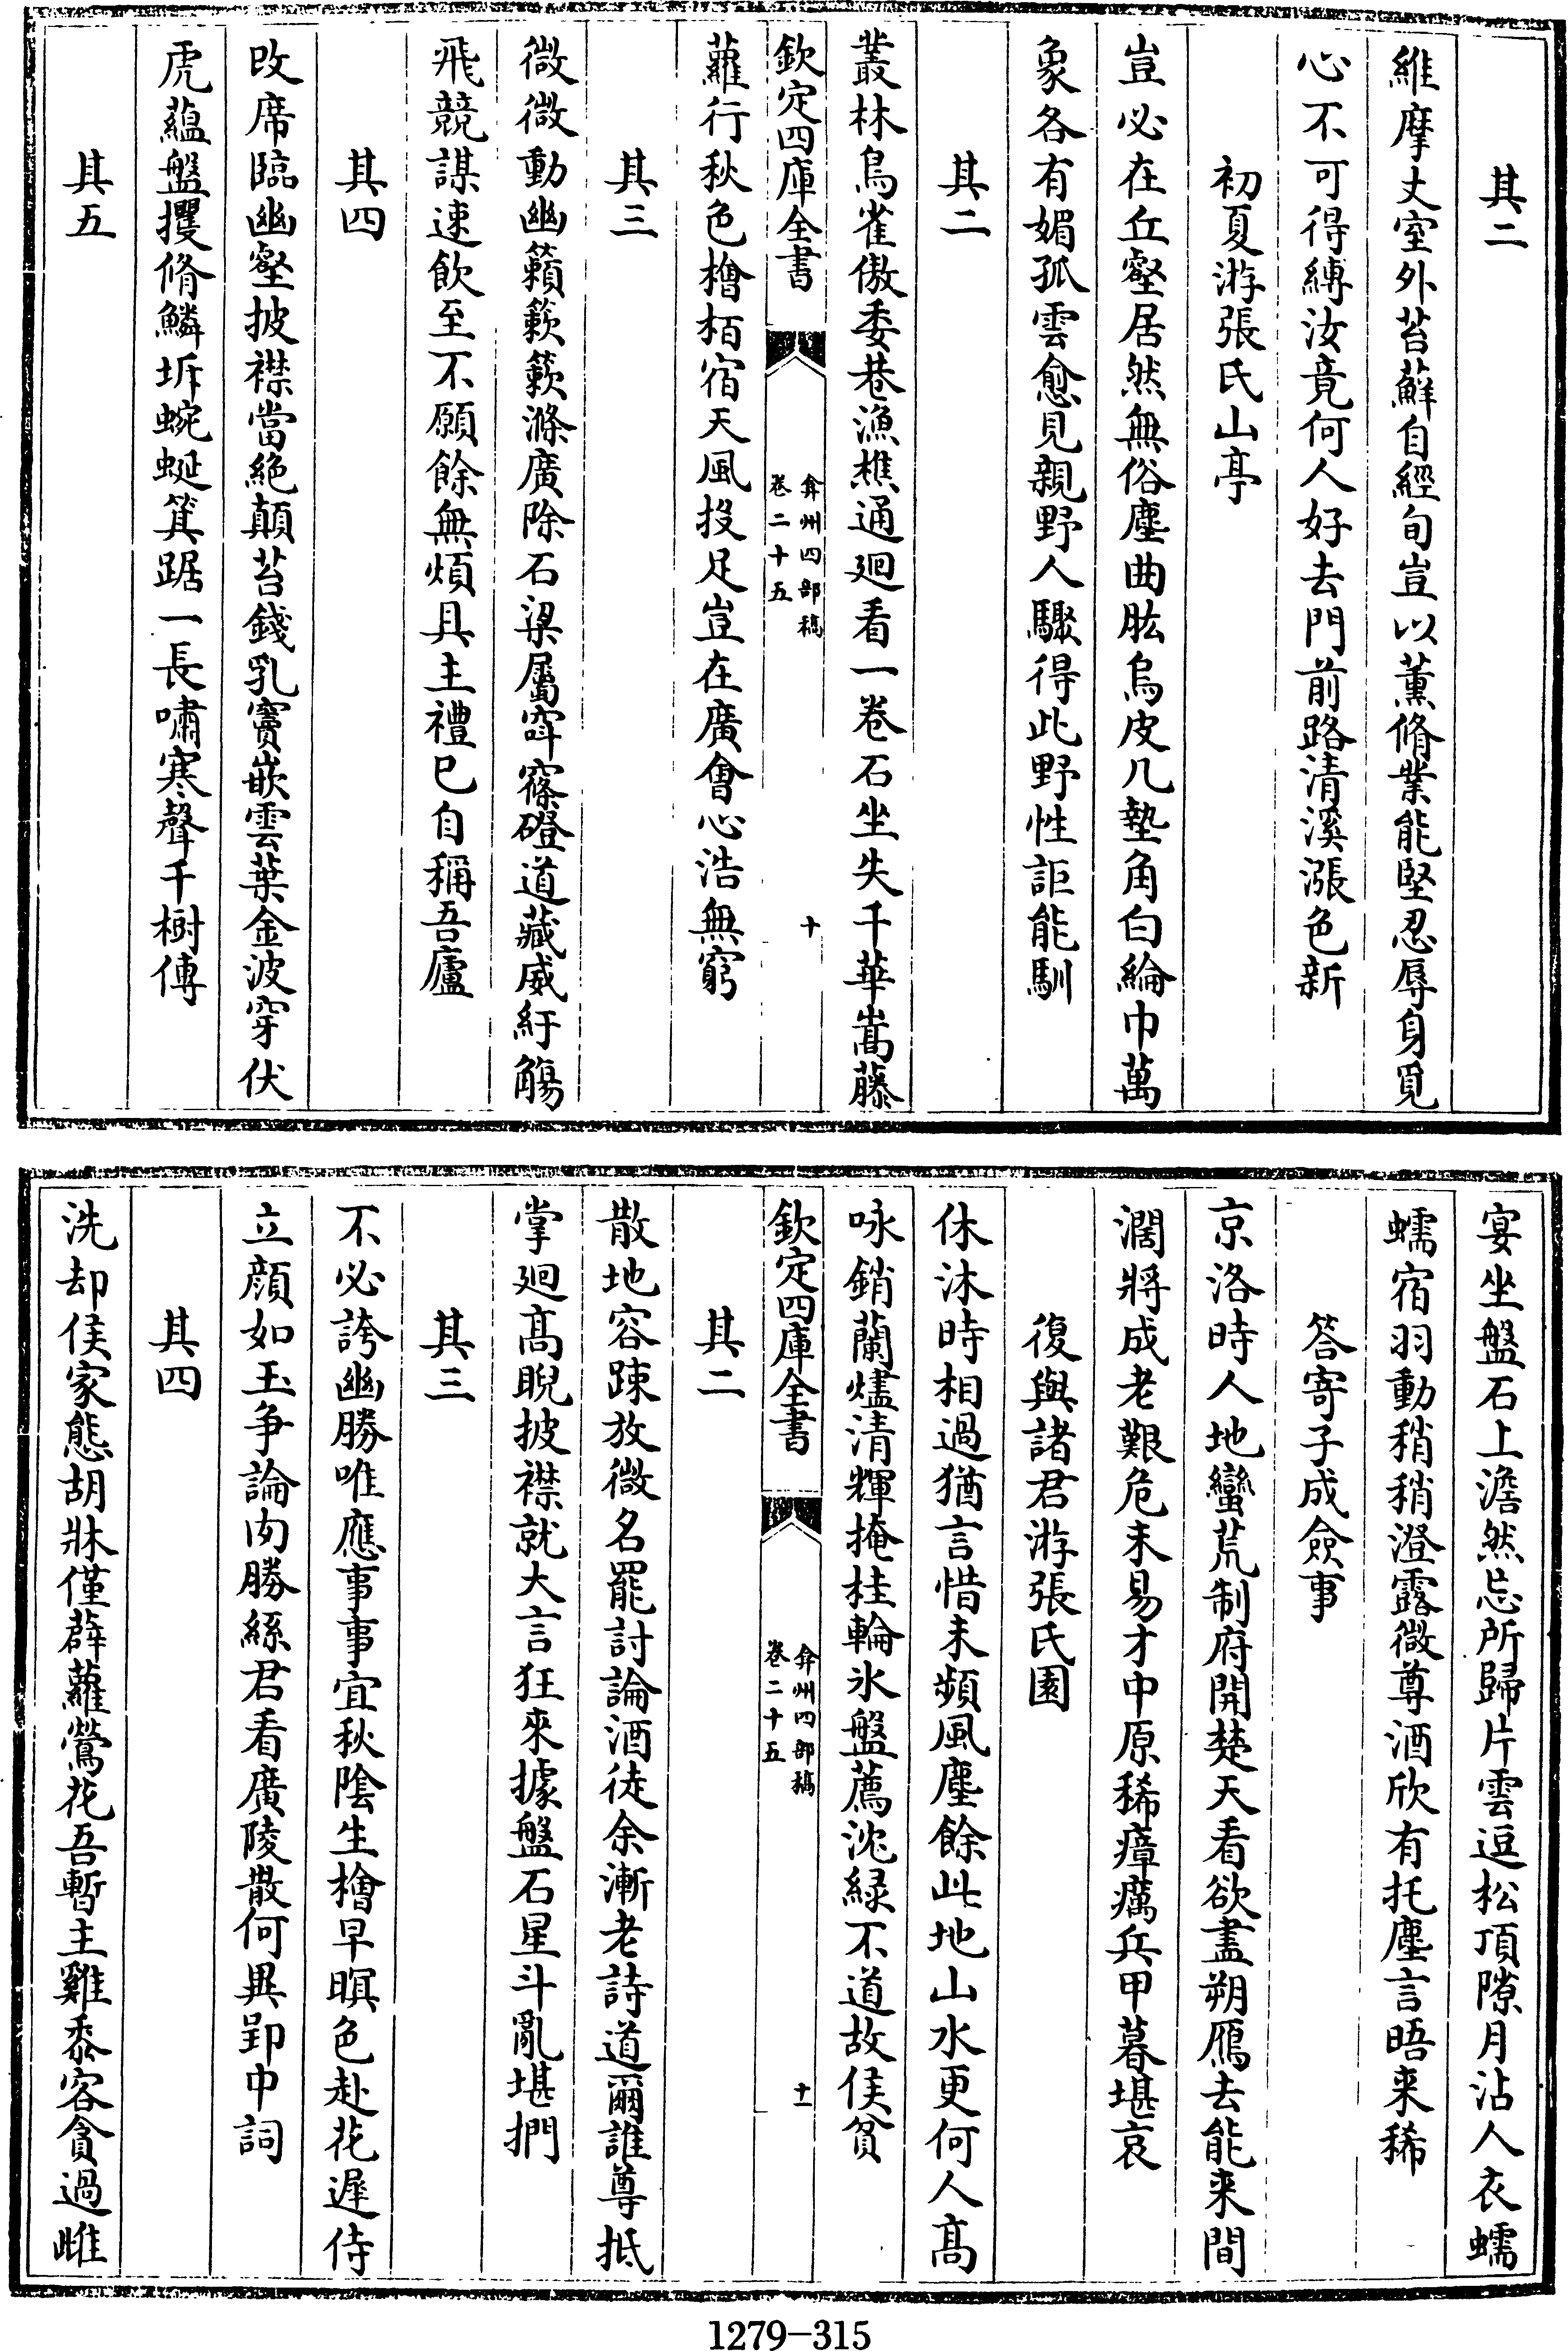 其二
維摩丈室外苔蘚自經旬豈以薰脩業能堅忍辱身覓
心不可得縛汝竟何人好去門前路清溪漲色新
初夏游張氏山亭
豈必在丘壑居然無俗塵曲肱烏皮几墊角白綸巾萬
象各有媚孤雲愈見親野人驟得此野性詎能馴
其二
叢林鳥雀傲委巷漁樵通廻看一卷石坐失千華嵩藤
欽定四庫全書
弇州四部稿
卷二十五
十
蘿行秋色檜栢宿天風投足豈在廣會心浩無窮
其三
微微動幽籟簌簌滌廣除石梁屬窏窱磴道藏威紆觴
飛競謀速飲至不願餘無煩具主禮已自稱吾廬
其四
改席臨幽壑披襟當絶顛苔錢乳竇嵌雲葉金波穿伏
虎蘊盤攫脩鱗坼蜿蜒箕踞一長嘯寒聲千樹傳
其五
宴坐盤石上澹然忘所歸片雲逗松頂隙月沾人衣蠕
蠕宿羽動稍稍澄露微尊酒欣有托塵言晤来稀
答寄子成僉事
京洛時人地蠻荒制府開楚天看欲盡朔鴈去能来間
濶將成老艱危未易才中原稀瘴癘兵甲暮堪哀
復與諸君游張氏園
休沐時相過猶言惜未頻風塵餘此地山水更何人髙
咏銷蘭燼清輝掩桂輪氷盤薦沈緑不道故侯貧
欽定四庫全書
弇州四部稿
卷二十五
十一
其二
散地容踈放微名罷討論酒徒余漸老詩道爾誰尊抵
掌廻髙睨披襟就大言狂來據盤石星斗亂堪捫
其三
不必誇幽勝唯應事事宜秋陰生檜早暝色赴花遲侍
立顔如玉争論肉勝絲君看廣陵散何異郢中詞
其四
洗却侯家態胡牀僅薜蘿鶯花吾暫主雞黍客貪過雎
1279-315